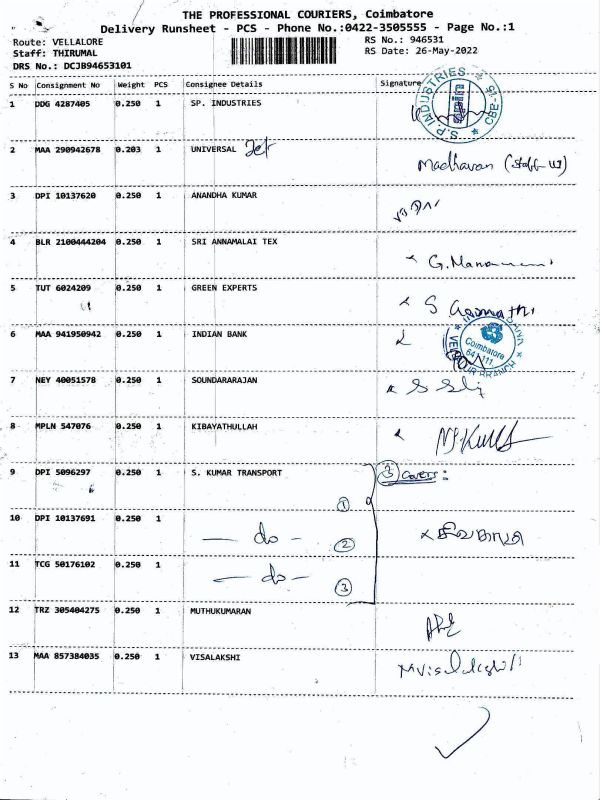 THE PROFESSIONAL COURIERS, Coimbatore
Delivery Runsheet - PCS - Phone No.:0422-3505555 - Page No.:1
Route: VELLALORE RS No.: 946531
Staff: THIRUMAL RS Date: 26-May-2022
DRS No.: DCJB94653101
S No Consignment No Weight PCS Consignee Details Signature
1 DDG 4287405 0.250 1 SP. INDUSTRIES
S.P. INDUSTRIES CBE-15
2 MAA 290942678 0.203 1 UNIVERSAL Jet Madhavan (Staff-UJ)
3 DPI 10137620 0.250 1 ANANDHA KUMAR
4 BLR 2100444204 0.250 1 SRI ANNAMALAI TEX
5 TUT 6024209 0.250 1 GREEN EXPERTS S Gomathi
6 MAA 941950942 0.250 1 INDIAN BANK
Coimbatore
641 111
BRANCH
7 NEY 40051578 0.250 1 SOUNDARARAJAN
8 MPLN 547076 0.250 1 KIBAYATHULLAH
9 DPI 5096297 0.250 1 S. KUMAR TRANSPORT 3 covers:
1
10 DPI 10137691 0.250 1 - do - 2
11 TCG 50176102 0.250 1 - do - 3
12 TRZ 305404275 0.250 1 MUTHUKUMARAN
13 MAA 857384035 0.250 1 VISALAKSHI